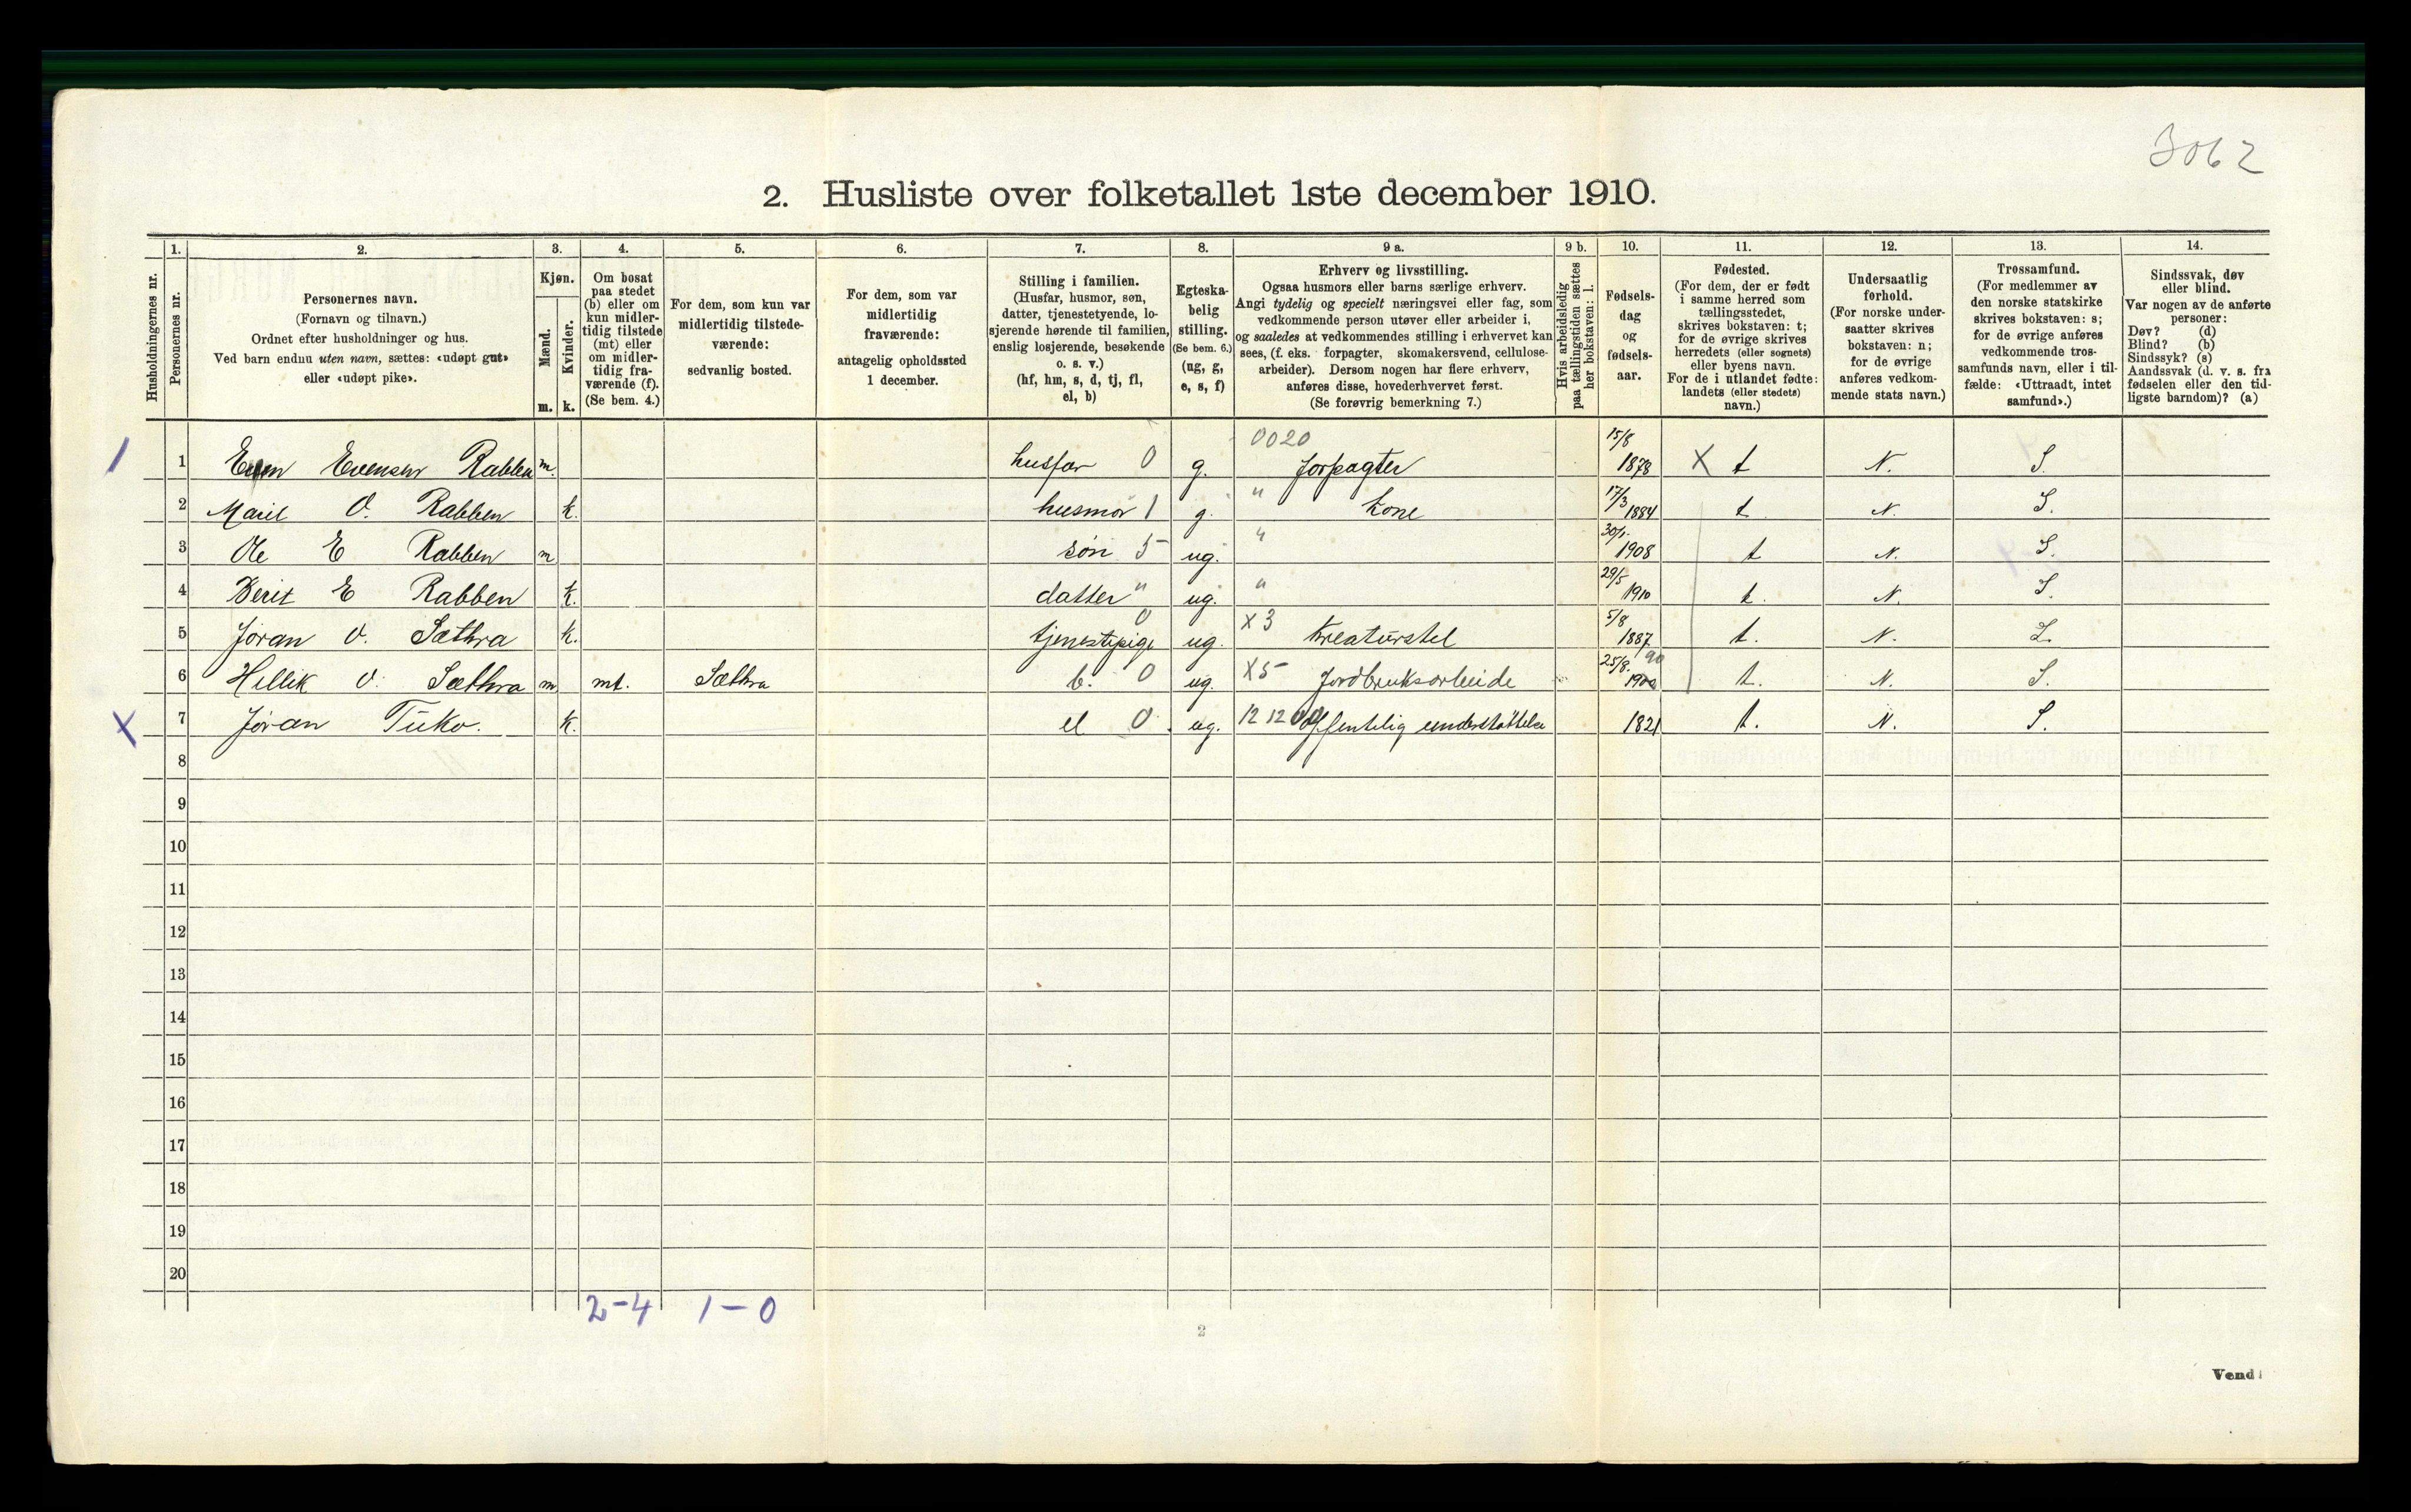 3062
2. Husliste over folketallet 1ste december 1910.
Husholdningernes nr.
1. Personernes nr.
2. Personernes navn.
(Fornavn og tilnavn.)
Ordnet efter husholdninger og hus.
Ved barn endnu uten navn, sættes: «udøpt gut»
eller «udøpt pike».
3. Kjøn.
Mænd. m.
Kvinder. k.
4. Om bosat
paa stedet
(b) eller om
kun midler-
tidig tilstede
(mt) eller
om midler-
tidig fra-
værende (f).
(Se bem. 4.)
5. For dem, som kun var
midlertidig tilstede-
værende:
sedvanlig bosted.
6. For dem, som var
midlertidig
fraværende:
antagelig opholdssted
1 december.
7. Stilling i familien.
(Husfar, husmor, søn,
datter, tjenestetyende, lo-
sjerende hørende til familien,
enslig losjerende, besøkende
o. s. v.)
(hf, hm, s, d, tj, fl,
el, b)
8. Egteska-
belig
stilling.
(Se bem. 6.)
(ug, g,
e, s, f)
9 a. Erhverv og livsstilling.
Ogsaa husmors eller barns særlige erhverv.
Angi tydelig og specielt næringsvei eller fag, som
vedkommende person utøver eller arbeider i,
og saaledes at vedkommendes stilling i erhvervet kan
sees, (f. eks. forpagter, skomakersvend, cellulose-
arbeider). Dersom nogen har flere erhverv,
anføres disse, hovederhvervet først.
(Se forøvrig bemerkning 7.)
9 b. Hvis arbeidsledig
paa tællingstiden sættes
her bokstaven: l.
10. Fødsels-
dag
og
fødsels-
aar.
11. Fødested.
(For dem, der er født
i samme herred som
tællingsstedet,
skrives bokstaven: t;
for de øvrige skrives
herredets (eller sognets)
eller byens navn.
For de i utlandet fødte:
landets (eller stedets)
navn.)
12. Undersaatlig
forhold.
(For norske under-
saatter skrives
bokstaven: n;
for de øvrige
anføres vedkom-
mende stats navn.)
13. Trossamfund.
(For medlemmer av
den norske statskirke
skrives bokstaven: s;
for de øvrige anføres
vedkommende tros-
samfunds navn, eller i til-
fælde: «Uttraadt, intet
samfund».)
14. Sindssvak, døv
eller blind.
Var nogen av de anførte
personer:
Døv? (d)
Blind? (b)
Sindssyk? (s)
Aandssvak (d. v. s. fra
fødselen eller den tid-
ligste barndom)? (a)
1 1 Even Evensen Rabben m. husfar 0 g. 0020 forpagter 15/8 1878 X t N. S.
2 Marit O. Rabben k. husmor 1 g. " kone 17/3 1884 t N. S.
3 Ole E Rabben m søn 5 ug. " 30/1 1908 t N. S.
4 Berit E Rabben k. datter " ug. " 29/5 1910 t. N. S.
5 Jøran O. Sæthra k. tjenestpige 0 ug. X3 Kreaturstel 5/8 1887. t. N. S.
6 Hellik O. Sæthra m mt. Sæthra b. 0 ug. X5 Jordbruksarbeide 25/8. 90 t. N. S.
X 7 Jøran Tuko. k. el 0 ug. 12 12 00 Offentelig understøttelse 1821 t. N. S.
8
9
10
11
12
13
14
15
16
17
18
19
20
2-4 1-0
2
Vend!